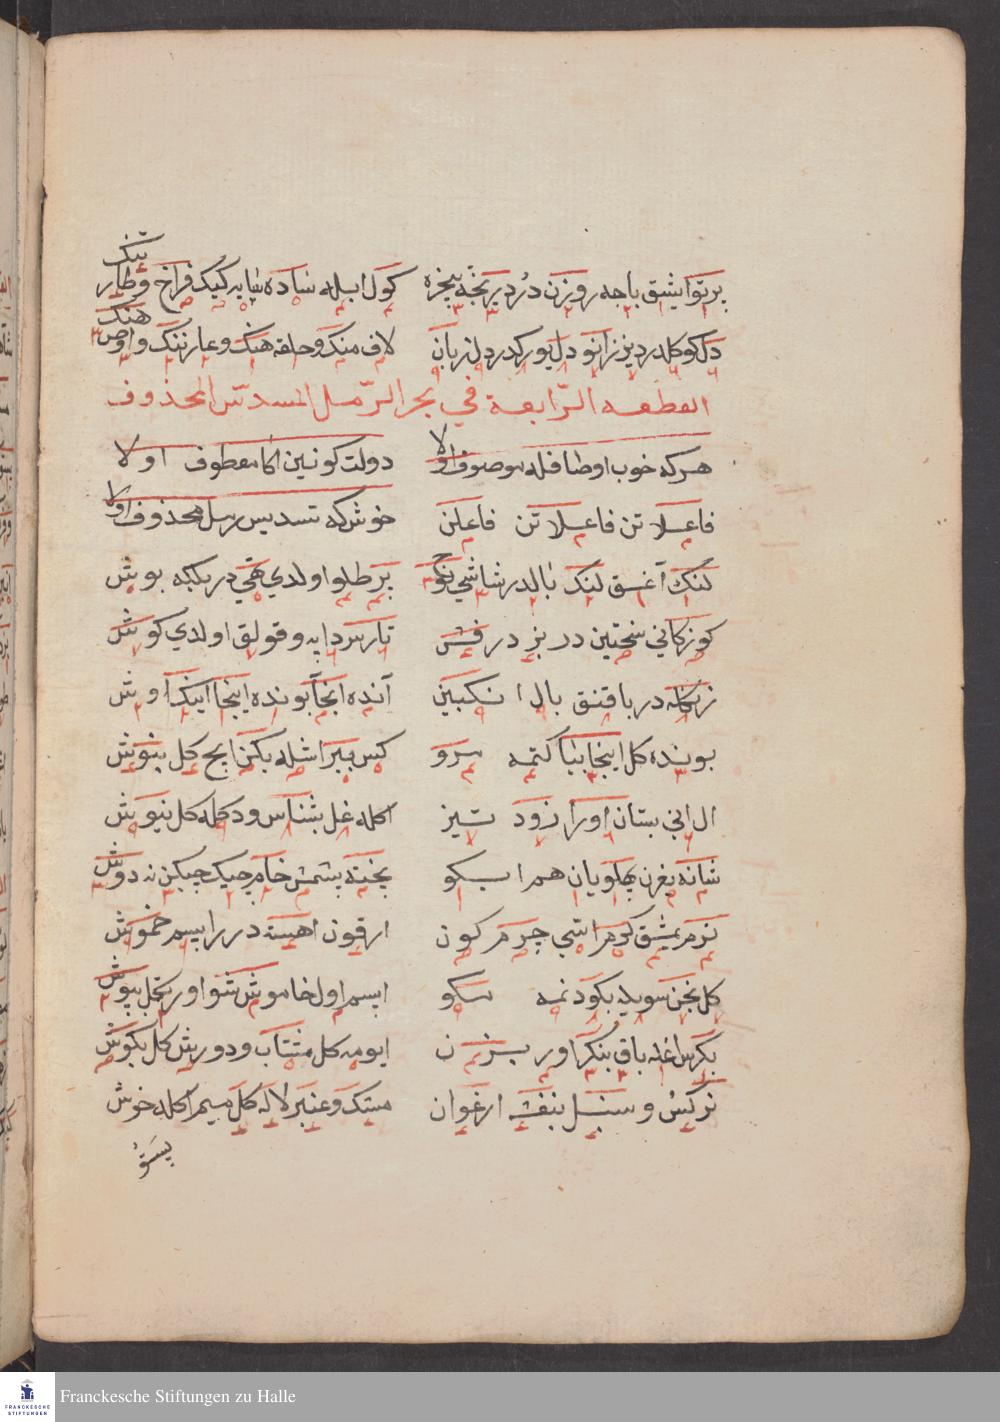 پرتو ایشق باجه روزن در دریچه پنجره کول ابله ساده سایه کیک فراخ و طار تنک
دل کوکلدر دیز زانو دل یورکدر دل زبان لاف منک و حلقه هنک و عار ننک و اوص هنک
القطعه الرّابعة في بحر الرّمل المسدّس المحذوف
هر که خوب اوصافله موصوف اولا دولت کونین اکا معطوف اولا
فاعلاتن فاعلاتن فاعلن خوش که تسدیس رمل محذوف اولا
کنک آغسق لنک بالدر شاشي بر طلو اولدي تهي در بلکه بوش
کوز کاني سختین در بز در فش تار سردابه و قولق اولدي کوش
در باقنق بال انکبین آنده آنجا بونده اینجا اینک اوش
بونده کل اینجا بیا کتمه مرو کس ببر اشله بکن ایچ کل بنوش
ال اني بستان اورا زود تیز اکله غل بشناس و دکله کل نیوش
شانه یغرن پهلو یان هم ا یکو پخته پشمش خام چیک چپکن نه دوش
نرم یمشق کرم اسي چرم کون ارقون اهسته در رابسم خموش
کل نجن سویله بکو دنمه مکو ابسم اول خاموش شو اورتجل بپوش
بکرمس اغله باق بنکر اور بزن ایومه کل مشتاب و دورش کل بکوش
نرکس و سنبل بنفشه ارغوان مسک و عنبر لاله کل میم اکله خوش
Franckesche Stiftungen zu Halle
FRANCKESCHE
STIFTUNGEN